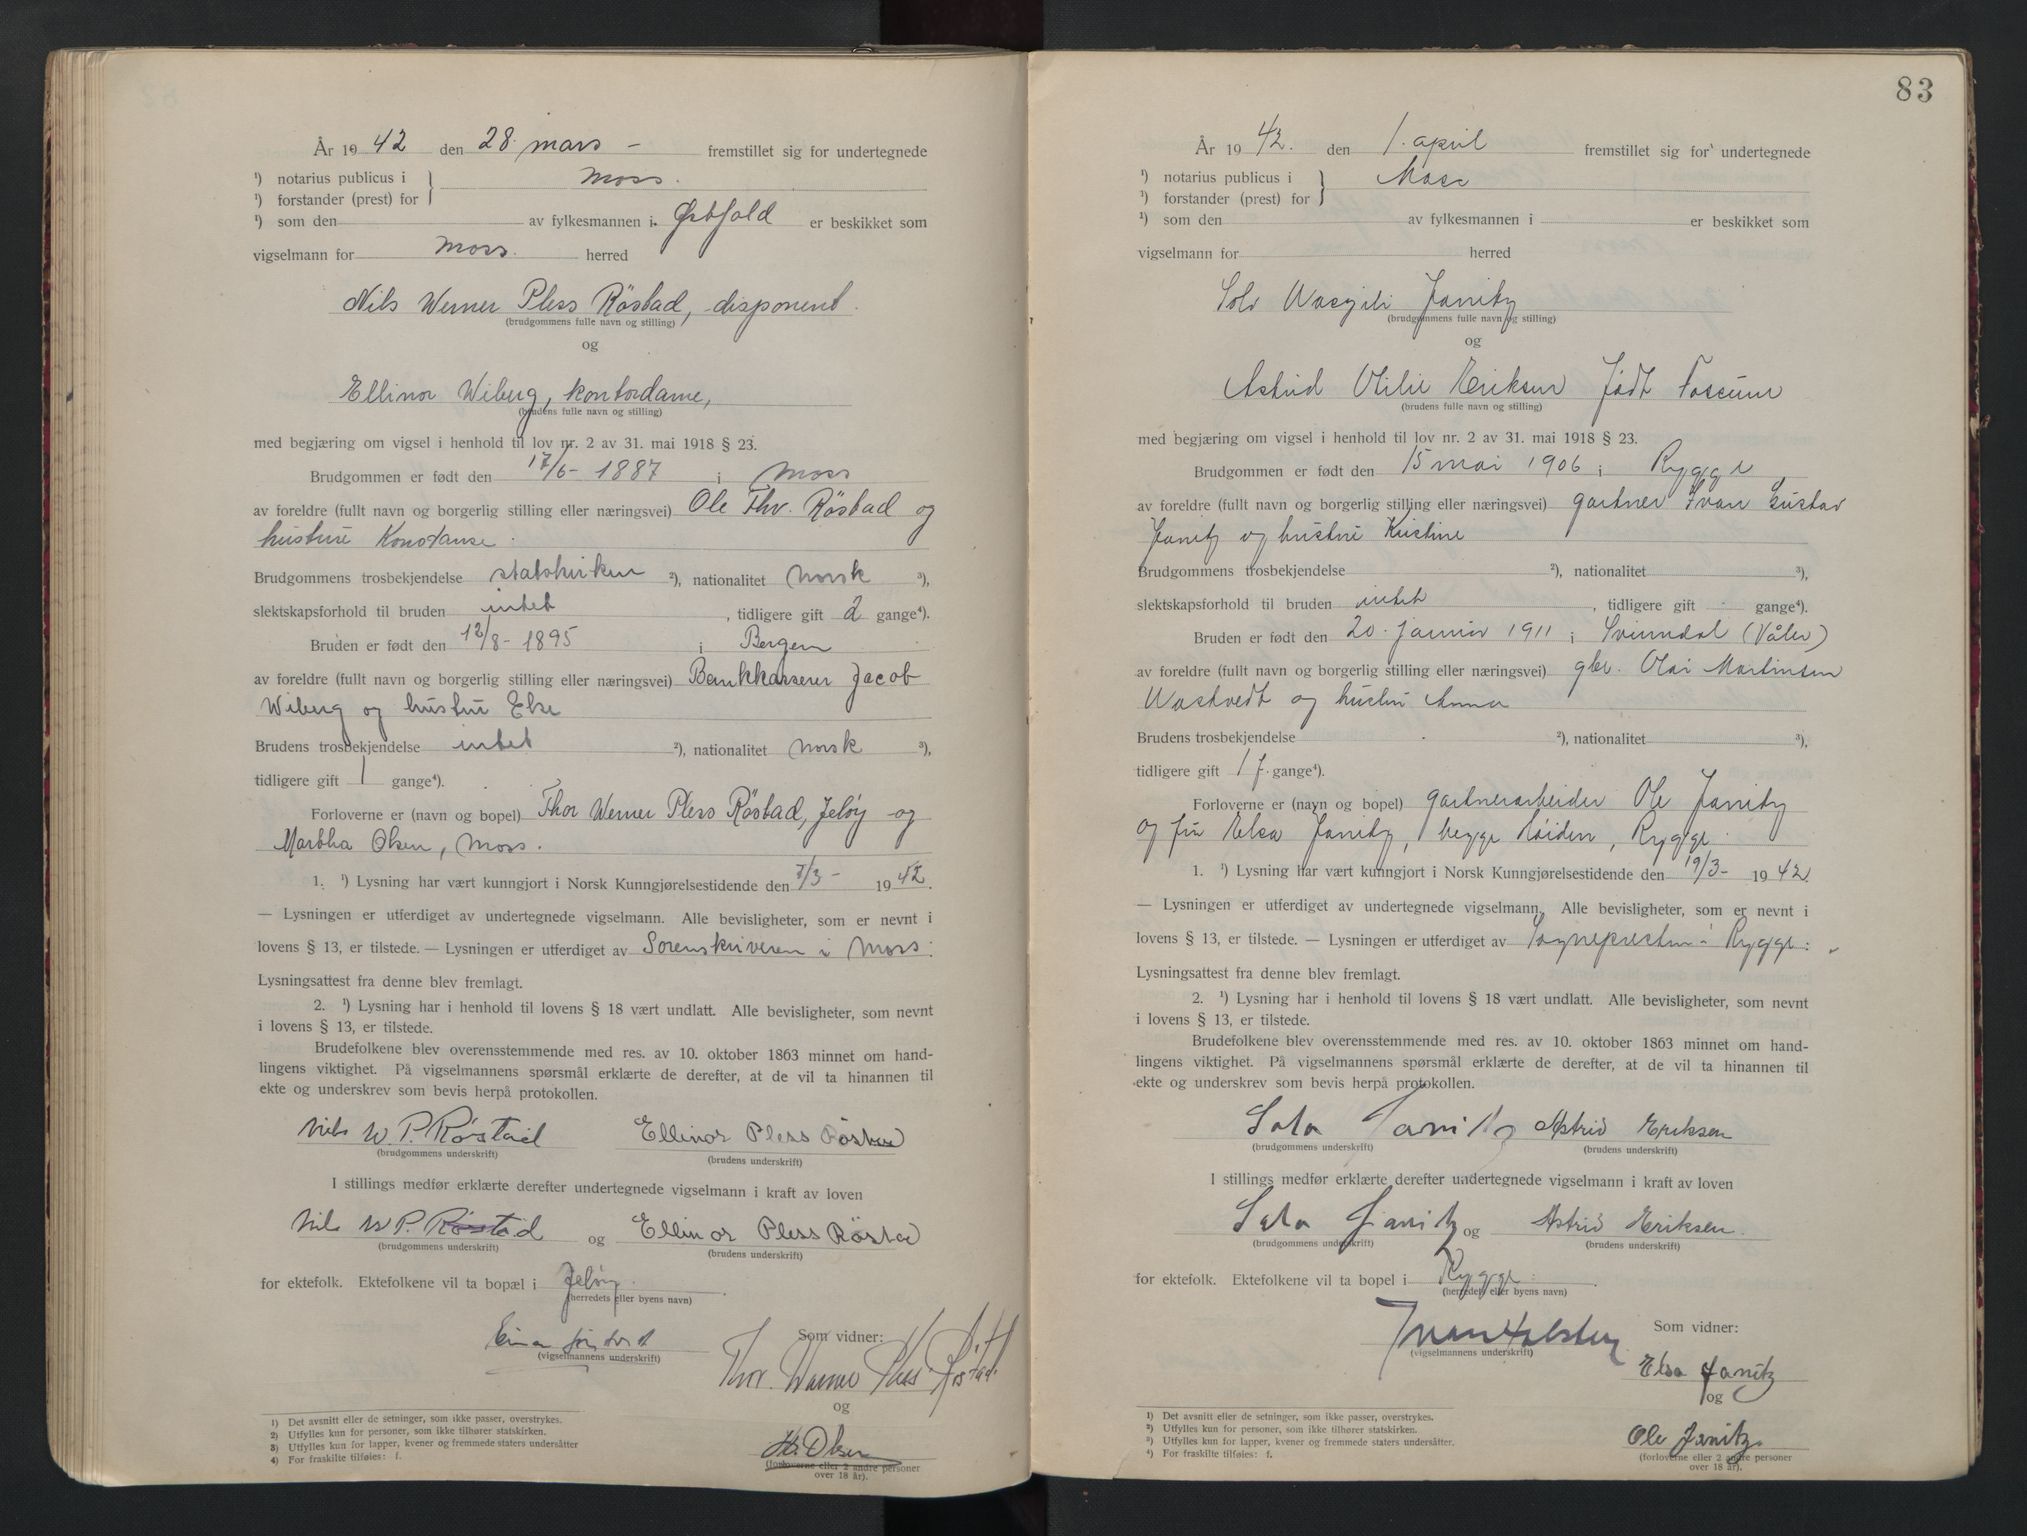 År 1942 den 28. mars - fremstillet sig for undertegnede
¹) notarius publicus i } Moss.
¹) forstander (prest) for
¹) som den av fylkesmannen i Østfold er beskikket som
vigselmann for Moss. herred
Nils Werner Pless Röstad, disponent.
(brudgommens fulle navn og stilling)
og
Ellinor Wiberg, kontordame,
(brudens fulle navn og stilling)
med begjæring om vigsel i henhold til lov nr. 2 av 31. mai 1918 § 23.
Brudgommen er født den 17/6- 1887 i Moss
av foreldre (fullt navn og borgerlig stilling eller næringsvei) Ole Thv. Röstad og
hustru Konstanse.
Brudgommens trosbekjendelse statskirken ²), nationalitet norsk ³),
slektskapsforhold til bruden intet, tidligere gift 2 gange⁴).
Bruden er født den 12/8- 1895 i Bergen
av foreldre (fullt navn og borgerlig stilling eller næringsvei) Bankkasserer Jacob
Wiberg og hustru Else
Brudens trosbekjendelse intet ²), nationalitet norsk ³),
tidligere gift 1 gange⁴).
Forloverne er (navn og bopel) Thor Werner Pless Röstad, Jeløy og
Martha Olsen, Moss.
1. ¹) Lysning har vært kunngjort i Norsk Kunngjørelsestidende den 7/3- 1942.
— Lysningen er utferdiget av undertegnede vigselmann. Alle bevisligheter, som er nevnt i
lovens § 13, er tilstede. — Lysningen er utferdiget av Sorenskriveren i Moss:
Lysningsattest fra denne blev fremlagt.
2. ¹) Lysning har i henhold til lovens § 18 vært undlatt. Alle bevisligheter, som nevnt
i lovens § 13, er tilstede.
Brudefolkene blev overensstemmende med res. av 10. oktober 1863 minnet om hand-
lingens viktighet. På vigselmannens spørsmål erklærte de derefter, at de vil ta hinannen til
ekte og underskrev som bevis herpå protokollen.
Nils W. P. Røstad Ellinor Pless Röstad
(brudgommens underskrift) (brudens underskrift)
I stillings medfør erklærte derefter undertegnede vigselmann i kraft av loven
Nils W P. Røstad og Ellinor Pless Röstad
(brudgommens underskrift) (brudens underskrift)
for ektefolk. Ektefolkene vil ta bopæl i Jeløy.
(herredets eller byens navn)
Som vidner:
(vigselmannens underskrift)
Thor. Werner Pless Røstad.
og
Olsen
(forloverne eller 2 andre personer
over 18 år).
1) Det avsnitt eller de setninger, som ikke passer, overstrykes.
2) Utfylles kun for personer, som ikke tilhører statskirken.
3) Utfylles kun for lapper, kvener og fremmede staters undersåtter
4) For fraskilte tilføies: f.
83
År 1942. den 1. april fremstillet sig for undertegnede
¹) notarius publicus i } Moss
¹) forstander (prest) for
¹) som den av fylkesmannen i er beskikket som
vigselmann for herred
Janitz
(brudgommens fulle navn og stilling)
og
Astrid Otilie Eriksen født Fossum
(brudens fulle navn og stilling)
med begjæring om vigsel i henhold til lov nr. 2 av 31. mai 1918 § 23.
Brudgommen er født den 15 mai 1906 i Rygge
av foreldre (fullt navn og borgerlig stilling eller næringsvei) gartner Ivan Gustav
Janitz og hustru Kristine
Brudgommens trosbekjendelse ²), nationalitet ³),
slektskapsforhold til bruden intet, tidligere gift gange⁴).
Bruden er født den 20. januar 1911 i Svinndal (Våler)
av foreldre (fullt navn og borgerlig stilling eller næringsvei) gbr. Olai Martinsen
og hustru Anna
Brudens trosbekjendelse ²), nationalitet ³),
tidligere gift 1 f. gange⁴).
Forloverne er (navn og bopel) gartnerarbeider Ole Janitz
og fru Elsa Janitz, begge Rygge
1. ¹) Lysning har vært kunngjort i Norsk Kunngjørelsestidende den 19/3- 1942.
— Lysningen er utferdiget av undertegnede vigselmann. Alle bevisligheter, som er nevnt i
lovens § 13, er tilstede. — Lysningen er utferdiget av Sognepresten i Rygge:
Lysningsattest fra denne blev fremlagt.
2. ¹) Lysning har i henhold til lovens § 18 vært undlatt. Alle bevisligheter, som nevnt
i lovens § 13, er tilstede.
Brudefolkene blev overensstemmende med res. av 10. oktober 1863 minnet om hand-
lingens viktighet. På vigselmannens spørsmål erklærte de derefter, at de vil ta hinannen til
ekte og underskrev som bevis herpå protokollen.
Janitz Astrid Eriksen
(brudgommens underskrift) (brudens underskrift)
I stillings medfør erklærte derefter undertegnede vigselmann i kraft av loven
Janitz og Astrid Eriksen.
(brudgommens underskrift) (brudens underskrift)
for ektefolk. Ektefolkene vil ta bopel i Rygge.
(herredets eller byens navn)
Som vidner:
(vigselmannens underskrift)
Elsa Janitz
og
Ole Janitz
(forloverne eller 2 andre personer
over 18 år).
1) Det avsnitt eller de setninger, som ikke passer, overstrykes.
2) Utfylles kun for personer, som ikke tilhører statskirken.
3) Utfylles kun for lapper, kvener og fremmede staters undersåtter.
4) For fraskilte tilføies: f.